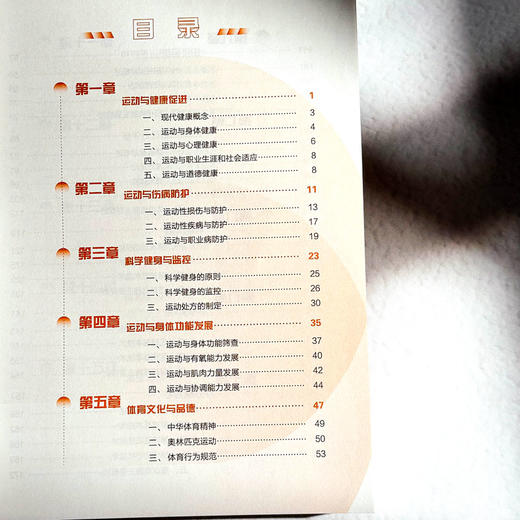 目录
第一章
运动与健康促进 1
一、现代健康概念 3
二、运动与身体健康 4
三、运动与心理健康 6
四、运动与职业生涯和社会适应 8
五、运动与道德健康 8
第二章
运动与伤病防护 11
一、运动性损伤与防护 13
二、运动性疾病与防护 17
三、运动与职业病防护 19
第三章
科学健身与监控 23
一、科学健身的原则 25
二、科学健身的监控 26
三、运动处方的制定 30
第四章
运动与身体功能发展 35
一、运动与身体功能筛查 37
二、运动与有氧能力发展 40
三、运动与肌肉力量发展 42
四、运动与协调能力发展 44
第五章
体育文化与品德 47
一、中华体育精神 49
二、奥林匹克运动 50
三、体育行为规范 53